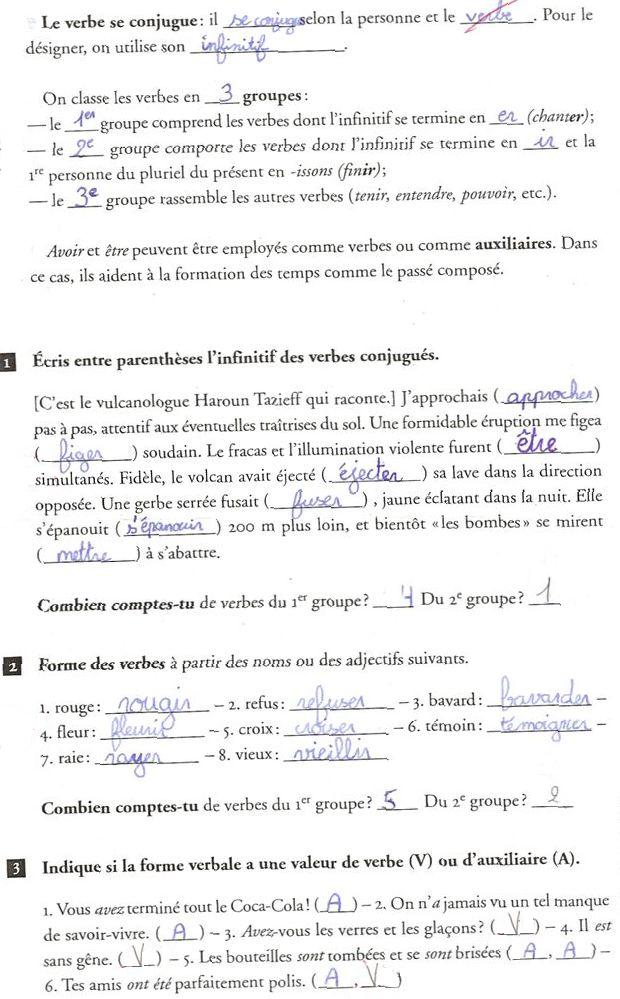 Le verbe se conjugue : il se conjugue selon la personne et le verbe. Pour le
désigner, on utilise son infinitif.
On classe les verbes en 3 groupes :
— le 1er groupe comprend les verbes dont l'infinitif se termine en er (chanter) ;
— le 2e groupe comporte les verbes dont l'infinitif se termine en ir et la
1re personne du pluriel du présent en -issons (finir) ;
— le 3e groupe rassemble les autres verbes (tenir, entendre, pouvoir, etc.).
Avoir et être peuvent être employés comme verbes ou comme auxiliaires. Dans
ce cas, ils aident à la formation des temps comme le passé composé.
1 Écris entre parenthèses l'infinitif des verbes conjugués.
[C'est le vulcanologue Haroun Tazieff qui raconte.] J'approchais (approcher)
pas à pas, attentif aux éventuelles traîtrises du sol. Une formidable éruption me figea
(figer) soudain. Le fracas et l'illumination violente furent (être)
simultanés. Fidèle, le volcan avait éjecté (éjecter) sa lave dans la direction
opposée. Une gerbe serrée fusait (fuser), jaune éclatant dans la nuit. Elle
s'épanouit (s'épanouir) 200 m plus loin, et bientôt « les bombes » se mirent
(mettre) à s'abattre.
Combien comptes-tu de verbes du 1er groupe ? 4 Du 2e groupe ? 1
2 Forme des verbes à partir des noms ou des adjectifs suivants.
1. rouge : rougir – 2. refus : refuser – 3. bavard : bavarder –
4. fleur : fleurir – 5. croix : croiser – 6. témoin : témoigner –
7. raie : rayer – 8. vieux : vieillir
Combien comptes-tu de verbes du 1er groupe ? 5 Du 2e groupe ? 2
3 Indique si la forme verbale a une valeur de verbe (V) ou d'auxiliaire (A).
1. Vous avez terminé tout le Coca-Cola ! (A) – 2. On n'a jamais vu un tel manque
de savoir-vivre. (A) – 3. Avez-vous les verres et les glaçons ? (V) – 4. Il est
sans gêne. (V) – 5. Les bouteilles sont tombées et se sont brisées (A, A) –
6. Tes amis ont été parfaitement polis. (A, V)